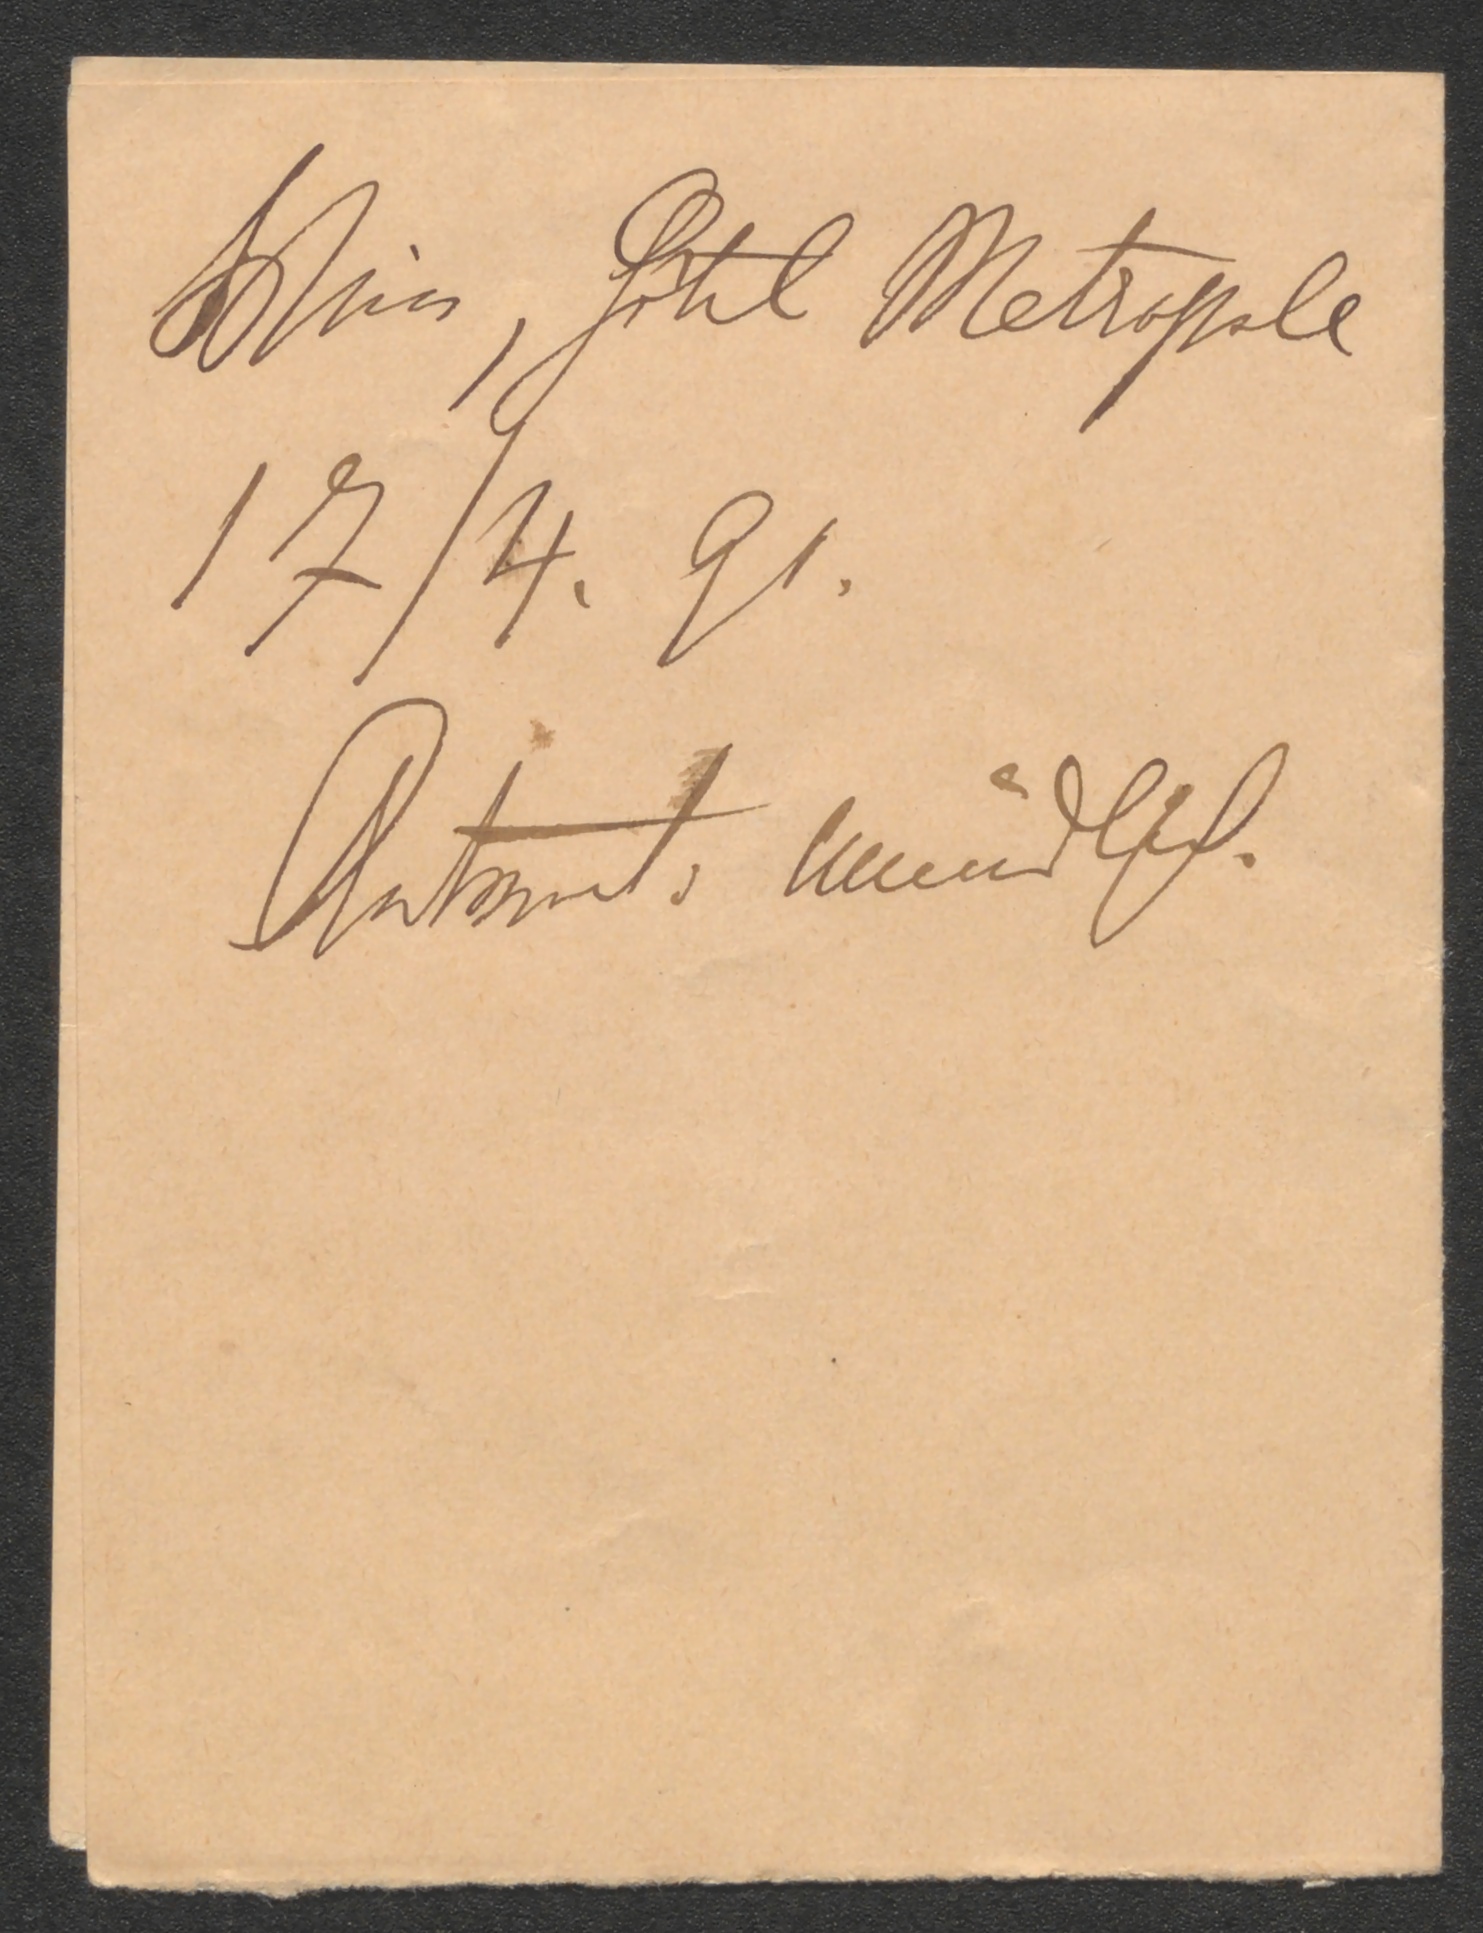 Wien, Hôtel Metropole
17/4. 91.
Antwort. mündlich.